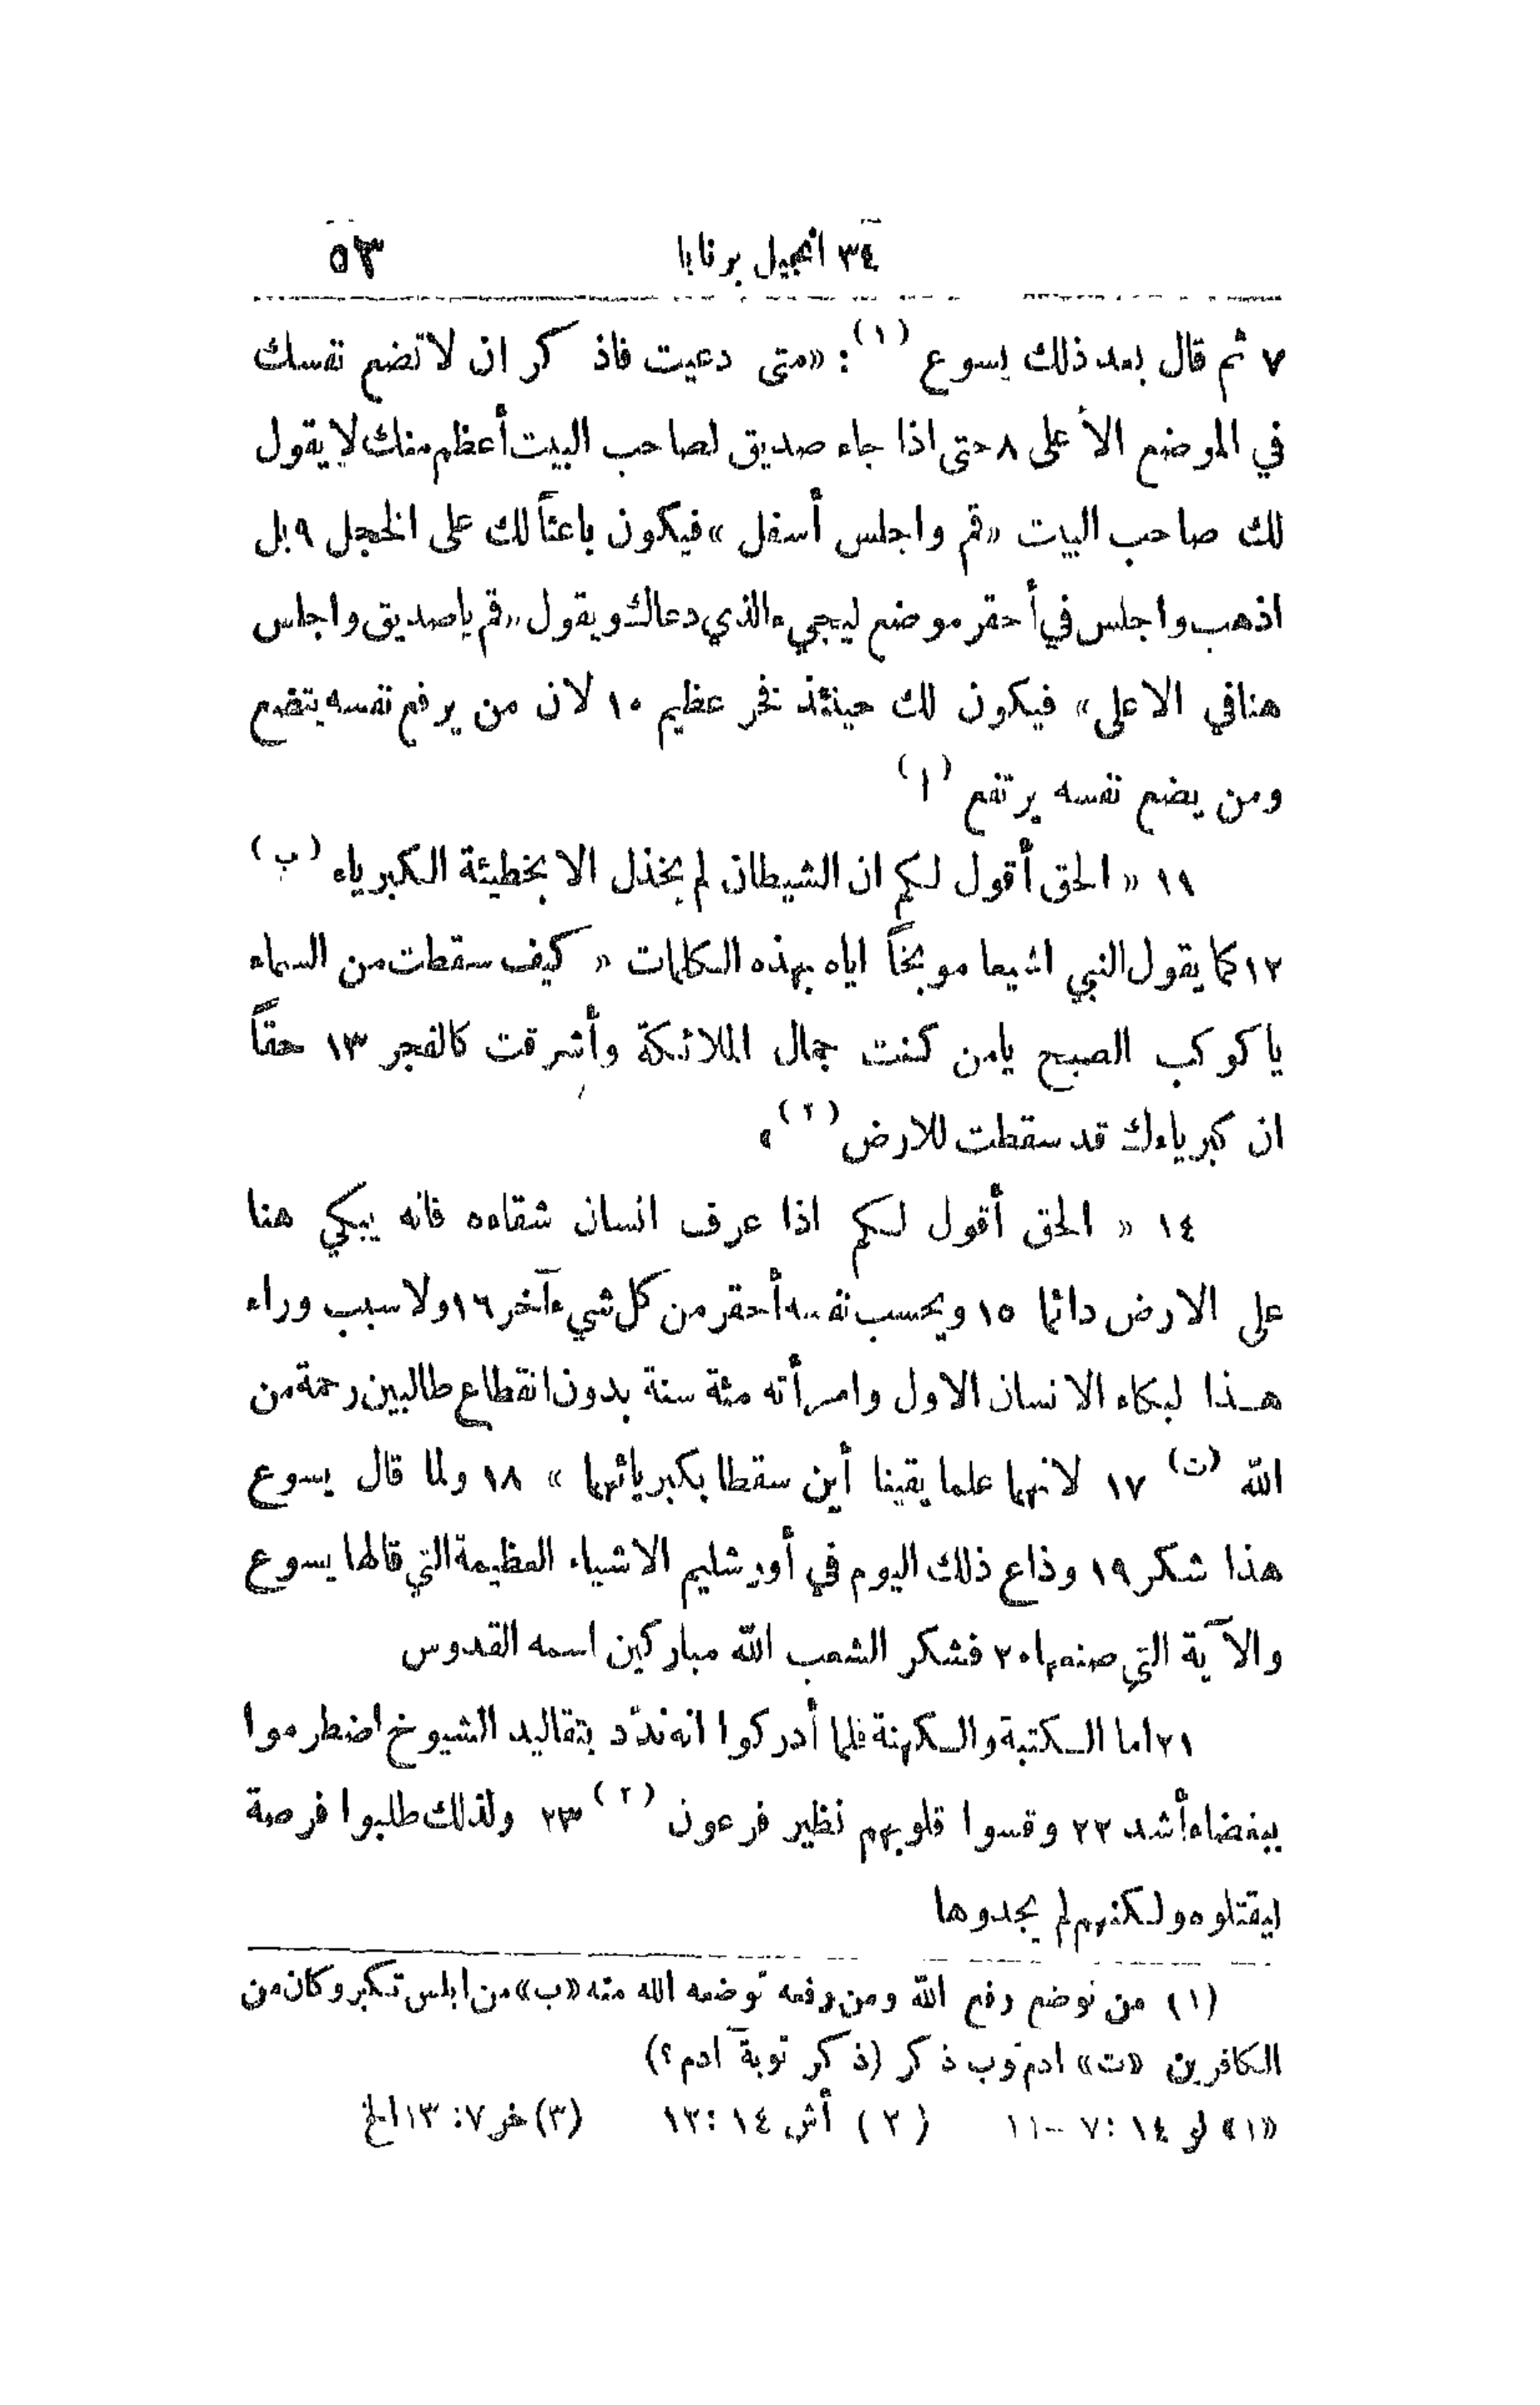 ٣٤ انجيل برنابا ٥٣
٧ ثم قال بعد ذلك يسوع (١) : «متى دعيت فاذكر ان لا تضع نفسك
في الموضع الأعلى ٨ حتى اذا جاء صديق لصاحب البيت أعظم منك لا يقول
لك صاحب البيت «قم واجلس أسفل» فيكون باعثاً لك على الخجل ٩ بل
اذهب واجلس في أحقر موضع ليجيء الذي دعاك ويقول «قم ياصديق واجلس
هنا في الاعلى» فيكون لك حينئذ فخر عظيم ١٠ لان من يرفع نفسه يتضع
ومن يضع نفسه يرتفع (ا)
١١ « الحق أقول لكم ان الشيطان لم يخذل الا بخطيئة الكبرياء (ب)
١٢ كما يقول النبي اشيعا موبخاً اياه بهذه الكلمات « كيف سقطت من السماء
يا كوكب الصبح يامن كنت جمال الملائكة وأشرقت كالفجر ١٣ حقاً
ان كبرياءك قد سقطت للارض (٢) »
١٤ « الحق أقول لكم اذا عرف انسان شقاءه فانه يبكي هنا
على الارض دائما ١٥ ويحسب نفسه أحقر من كل شيء آخر ١٦ ولا سبب وراء
هذا لبكاء الانسان الاول وامرأته مئة سنة بدون انقطاع طالبين رحمة من
الله (ت) ١٧ لانهما علما يقينا أين سقطا بكبريائهما » ١٨ ولما قال يسوع
هذا شكر ١٩ وذاع ذلك اليوم في أورشليم الاشياء العظيمة التي قالها يسوع
والآية التي صنعها ٢٠ فشكر الشعب الله مباركين اسمه القدوس
٢١ اما الكتبة والكهنة فلما أدركوا انه ندّد بتقاليد الشيوخ اضطرموا
ببغضاء أشد ٢٢ وقسوا قلوبهم نظير فرعون (٢) ٢٣ ولذلك طلبوا فرصة
ليقتلوه ولكنهم لم يجدوها
(١) من توضع رفع الله ومن رفعه توضعه الله منه «ب» من ابلس تكبر وكان من
الكافرين «ت» ادم وب ذكر (ذكر توبة آدم ؟)
«١» لو ١٤ : ٧ -- ١١ (٢) أش ١٤ : ١٢ (٣) خر ٧ : ١٣ الخ